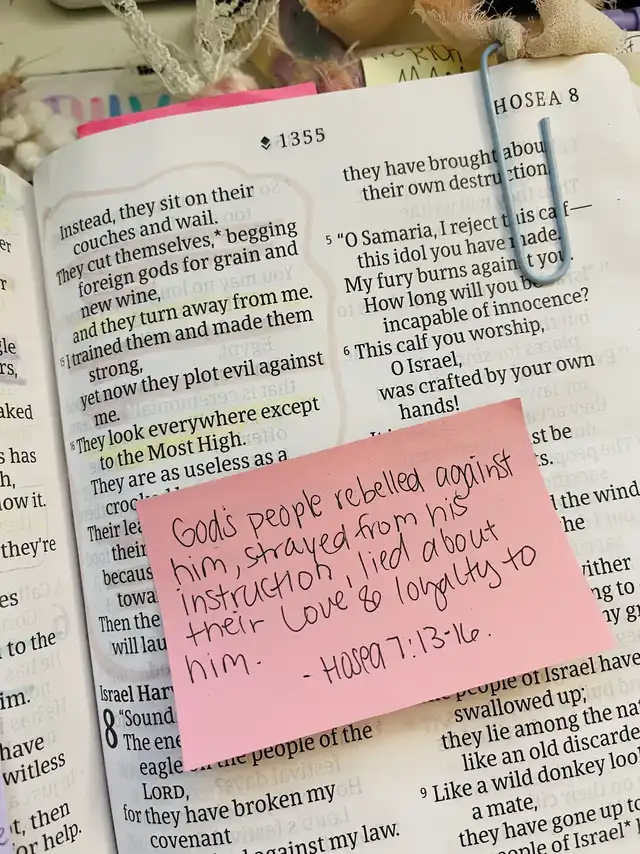 THE RICH
MAN
HOSEA 8
1355
Instead, they sit on their
couches and wail.
They cut themselves,* begging
foreign gods for grain and
new wine,
and they turn away from me.
15 I trained them and made them
strong,
yet now they plot evil against
me.
16 They look everywhere except
to the Most High.
They are as useless as a
Their
their
towa
Then the
will
Israel
8 "Sound
The
eagle the people of the
LORD,
for they have broken my
covenant
against my law.
they have brought
their own destruction.
5 "O Samaria, I reject this calf—
this idol you have made.
My fury burns against you.
How long will you be
incapable of innocence?
6 This calf you worship,
O Israel,
was crafted by your own
hands!
be
the wind
he
ng to
people of Israel have
swallowed up;
they lie among the
like an old
9 Like a wild donkey
a mate,
they have gone up to
people of Israel*
God's people rebelled against
him, strayed from his
instruction, lied about
their love & loyalty to
him.
- Hosea 7:13-16.
er
r
gle
rs,
aked
s has
h,
now it.
they're
es
to the
im.
have
witless
t, then
or help.